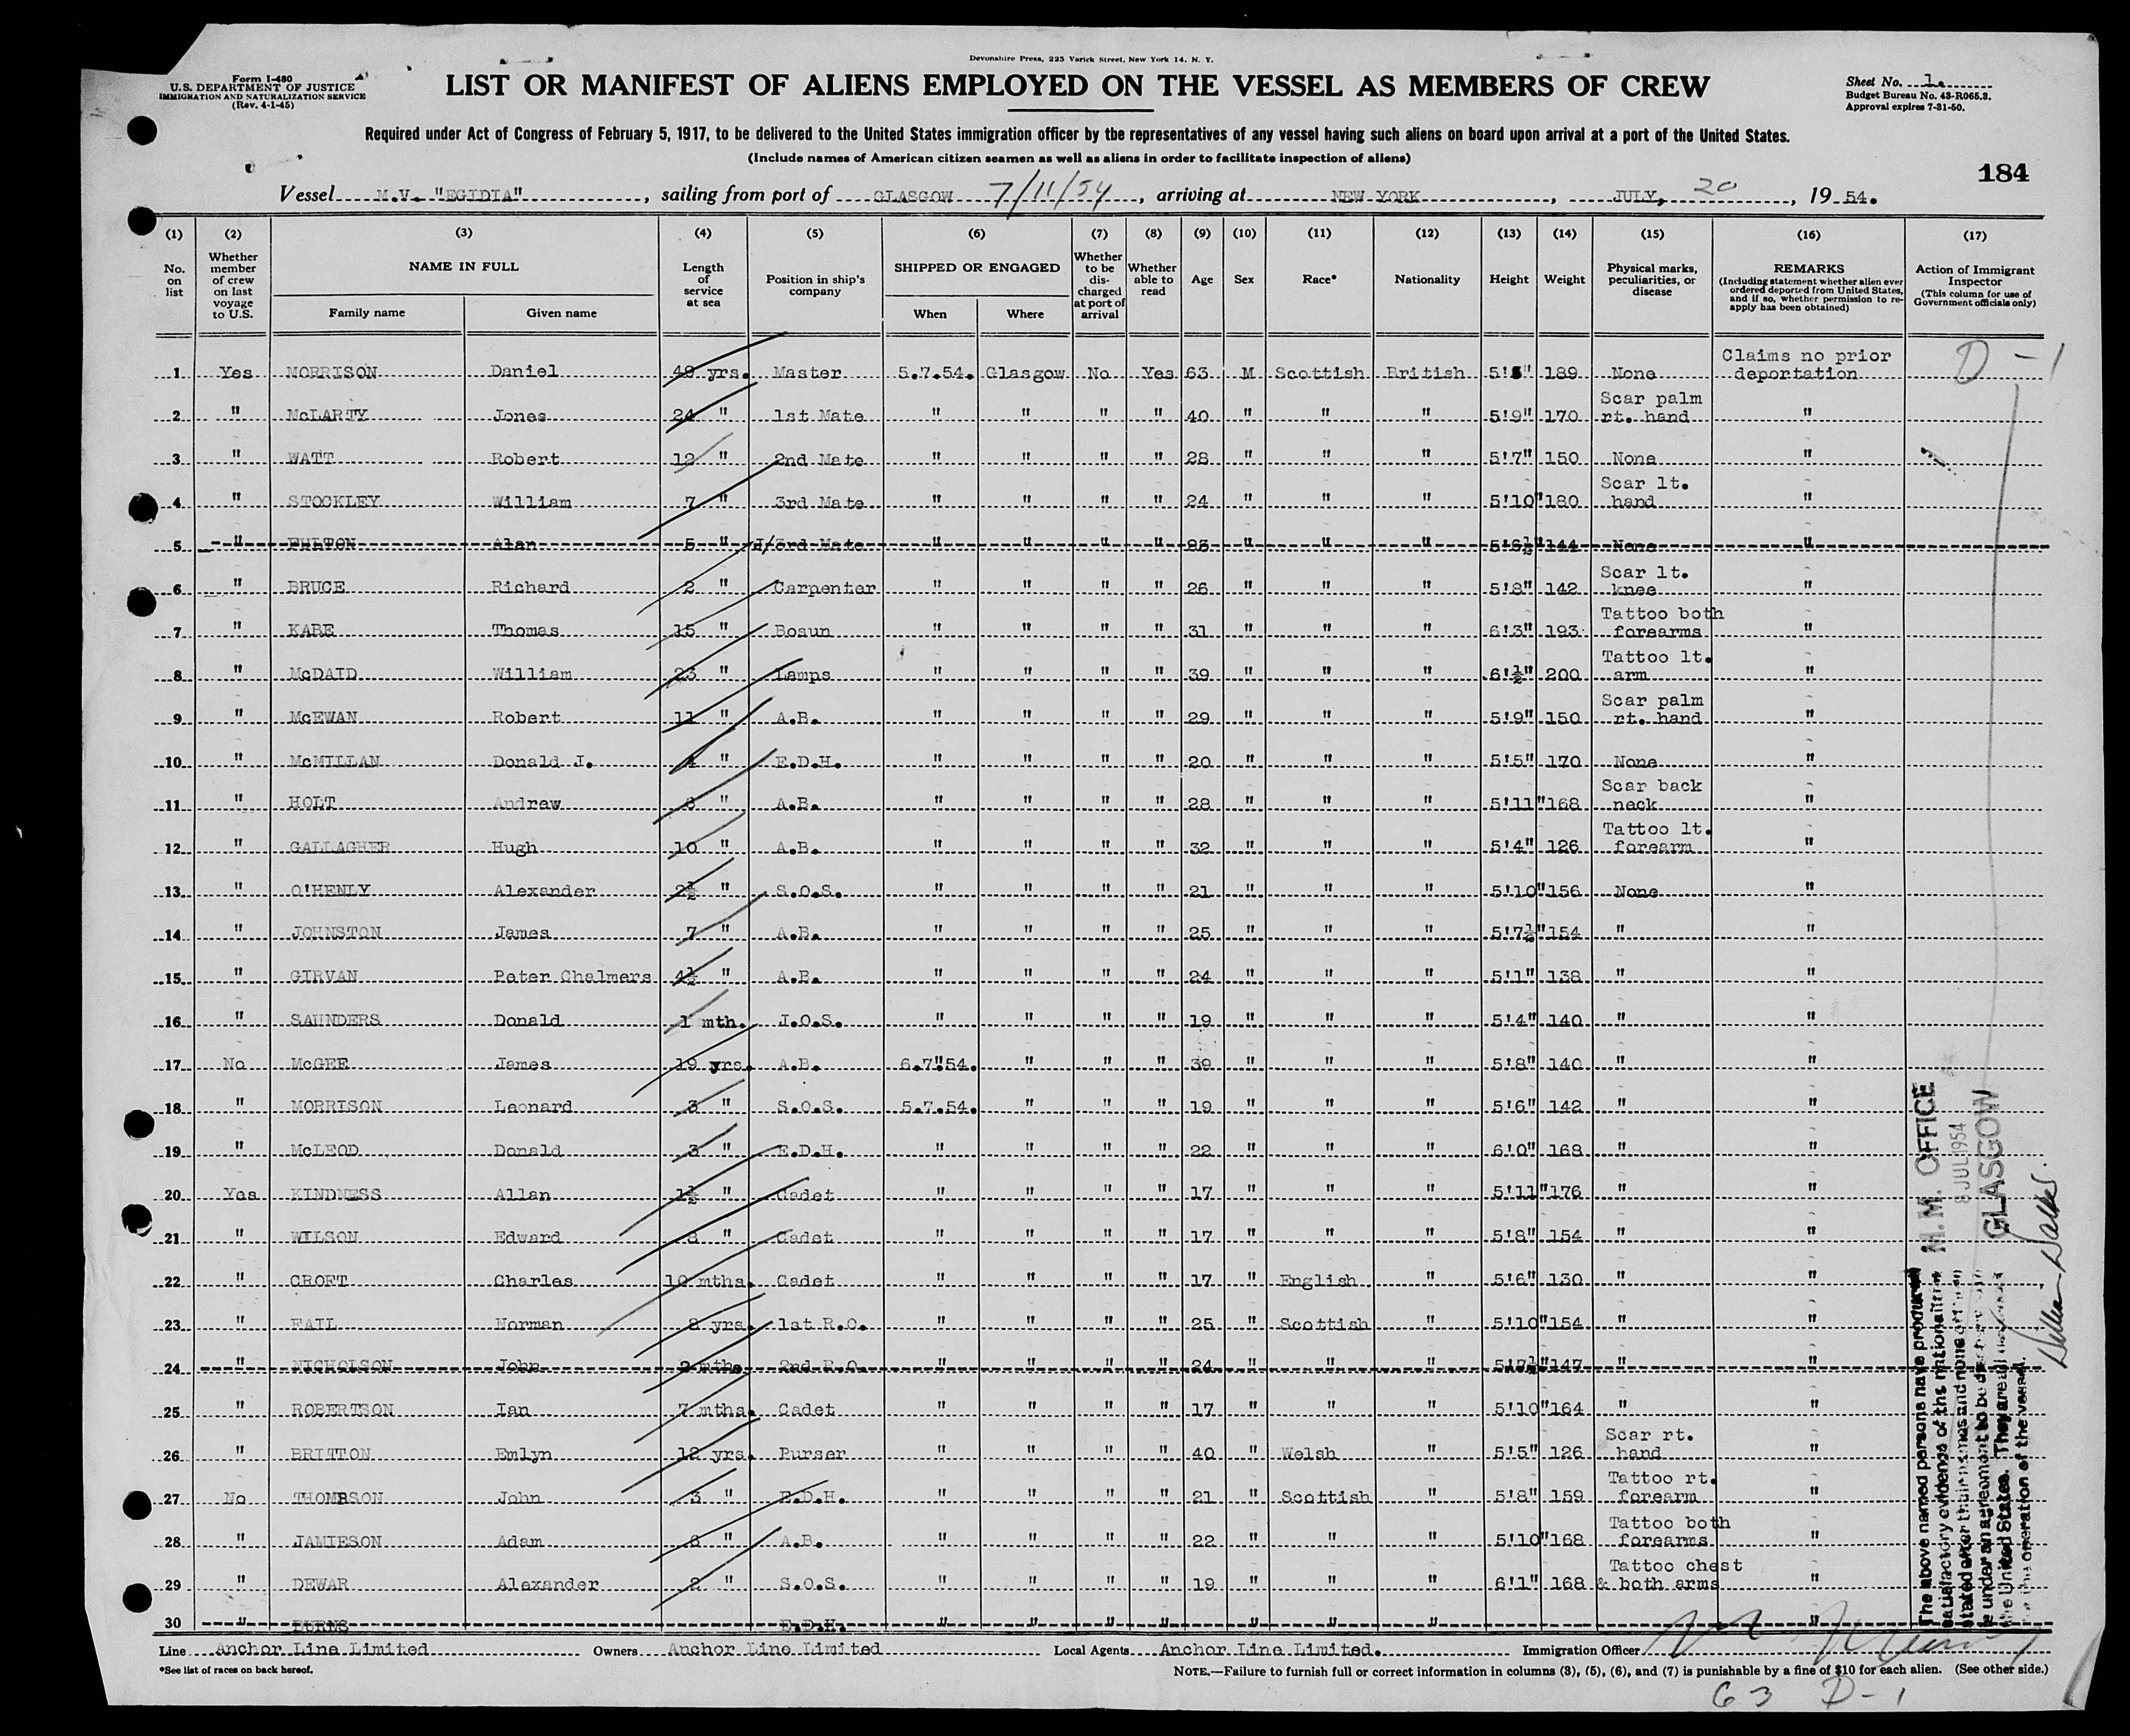 Devonshire Press, 225 Varick Street, New York 14, N. Y.
Form I-480
U.S. DEPARTMENT OF JUSTICE
IMMIGRATION AND NATURALIZATION SERVICE
(Rev. 4-1-45)
LIST OR MANIFEST OF ALIENS EMPLOYED ON THE VESSEL AS MEMBERS OF CREW
Sheet No. 1.
Budget Bureau No. 43-R065.3.
Approval expires 7-31-50.
Required under Act of Congress of February 5, 1917, to be delivered to the United States immigration officer by the representatives of any vessel having such aliens on board upon arrival at a port of the United States.
(Include names of American citizen seamen as well as aliens in order to facilitate inspection of aliens)
184
Vessel M.V. "EGIDIA", sailing from port of GLASGOW 7/11/54, arriving at NEW YORK, JULY, 20, 19 54.
(1) (2) (3) (4) (5) (6) (7) (8) (9) (10) (11) (12) (13) (14) (15) (16) (17)
No. on list
Whether member of crew on last voyage to U.S.
NAME IN FULL
Family name Given name
Length of service at sea
Position in ship's company
SHIPPED OR ENGAGED
When Where
Whether to be discharged at port of arrival
Whether able to read
Age
Sex
Race*
Nationality
Height
Weight
Physical marks, peculiarities, or disease
REMARKS
(Including statement whether alien ever ordered deported from United States, and if so, whether permission to re-apply has been obtained)
Action of Immigrant Inspector
(This column for use of Government officials only)
1 Yes MORRISON Daniel 49 yrs. Master 5.7.54. Glasgow No Yes 63 M Scottish British 189 None Claims no prior deportation D-1
2 " McLARTY Jones 24 " 1st Mate " " " " 40 " " " 5'9" 170 Scar palm rt. hand "
3 " WATT Robert 12 " 2nd Mate " " " " 28 " " " 5'7" 150 None "
4 " STOCKLEY William 7 " 3rd Mate " " " " 24 " " " 5'10" 180 Scar lt. hand "
5 " FULTON Alan 5 " J/3rd Mate " " " " 23 " " " 5'6½" 144 None "
6 " BRUCE Richard 2 " Carpenter " " " " 26 " " " 5'8" 142 Scar lt. knee "
7 " KABE Thomas 15 " Bosun " " " " 31 " " " 6'3" 193 Tattoo both forearms "
8 " McDAID William 23 " Lamps " " " " 39 " " " 6'½" 200 Tattoo lt. arm "
9 " McEWAN Robert 11 " A.B. " " " " 29 " " " 5'9" 150 Scar palm rt. hand "
10 " McMILLAN Donald J. 4 " E.D.H. " " " " 20 " " " 5'5" 170 None "
11 " HOLT Andrew " A.B. " " " " 28 " " " 5'11" 168 Scar back neck "
12 " GALLAGHER Hugh 10 " A.B. " " " " 32 " " " 5'4" 126 Tattoo lt. forearm "
13 " O'HENLY Alexander 2½ " S.O.S. " " " " 21 " " " 5'10" 156 None "
14 " JOHNSTON James 7 " A.B. " " " " 25 " " " 5'7½" 154 " "
15 " GIRVAN Peter Chalmers 4½ " A.B. " " " " 24 " " " 5'1" 138 " "
16 " SAUNDERS Donald 1 mth. J.O.S. " " " " 19 " " " 5'4" 140 " "
17 No McGEE James 19 yrs. A.B. 6.7.54. " " " 39 " " " 5'8" 140 " "
18 " MORRISON Leonard 3 " S.O.S. 5.7.54. " " " 19 " " " 5'6" 142 " "
19 " McLEOD Donald 3 " E.D.H. " " " " 22 " " " 6'0" 168 " "
20 Yes KINDNESS Allan 1½ " Cadet " " " " 17 " " " 5'11" 176 " "
21 " WILSON Edward " Cadet " " " " 17 " " " 5'8" 154 " "
22 " CROFT Charles 10 mths. Cadet " " " " 17 " English " 5'6" 130 " "
23 " FAIL Norman 8 yrs. 1st R.O. " " " " 25 " Scottish " 5'10" 154 " "
24 " NICHOLSON John 9 mths. 2nd R.O. " " " " 24 " " " 5'7½" 147 " "
25 " ROBERTSON Ian 7 mths. Cadet " " " " 17 " " " 5'10" 164 " "
26 " BRITTON Emlyn 12 yrs. Purser " " " " 40 " Welsh " 5'5" 126 Scar rt. hand "
27 No THOMSON John 3 " E.D.H. " " " " 21 " Scottish " 5'8" 159 Tattoo rt. forearm "
28 " JAMIESON Adam 6 " A.B. " " " " 22 " " " 5'10" 168 Tattoo both forearms "
29 " DEWAR Alexander 2 " S.O.S. " " " " 19 " " " 6'1" 168 Tattoo chest & both arms "
30 " BURNS E.D.H. " " " " " " " "
M.M. OFFICE
8 JUL 1954
GLASGOW
The above named persons have produced
satisfactory evidence of the nationalities
stated after their names and none of them
is under an agreement to be discharged in
the United States. They are all
for the operation of the vessel.
Line Anchor Line Limited Owners Anchor Line Limited Local Agents Anchor Line Limited. Immigration Officer
*See list of races on back hereof.
NOTE.—Failure to furnish full or correct information in columns (3), (5), (6), and (7) is punishable by a fine of $10 for each alien. (See other side.)
63 D-1